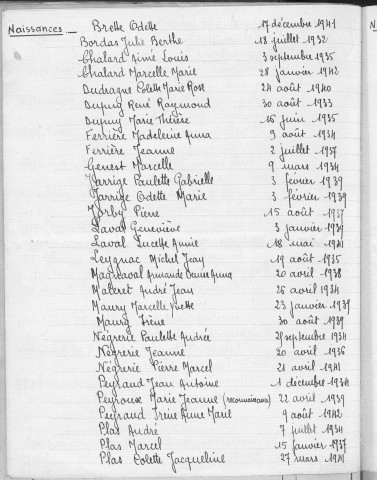 Naissances Brette Odette 17 décembre 1941
Bordas Julie Berthe 18 juillet 1932
Chalard Aimé Louis 3 septembre 1935
Chalard Marcelle Marie 28 janvier 1942
Dudragne Colette Marie Rose 24 août 1940
Dupuy René Raymond 30 août 1933
Dupuy Marie Thérèse 16 juin 1935
Ferrière Madeleine Anna 9 août 1934
Ferrière Jeanne 2 juillet 1937
Genest Marcelle 9 mars 1934
Jarrige Paulette Gabrielle 3 février 1939
Jarrige Odette Marie 3 février 1939
Jorby Pierre 15 août 1937
Laval Geneviève 3 janvier 1939
Laval Lucette Annie 18 mai 1941
Leygnac Michel Jean 19 août 1935
Magnaval Armande Denise Anna 20 avril 1938
Materet André Jean 26 avril 1934
Maury Marcelle Yvette 23 janvier 1939
Maury Irène 30 août 1939
Négrerie Paulette Andrée septembre 1934
Négrerie Jeanne 20 avril 1936
Négrerie Pierre Marcel 21 avril 1941
Peyraud Jean Antoine 1 décembre 1934
Peyroux Marie Jeanne (reconnaissance) 22 avril 1939
Peyraud Irène Anne Marie 9 août 1942
Plas André 7 juillet 1934
Plas Marcel 15 janvier 1937
Plas Colette Jacqueline 27 mars 1941